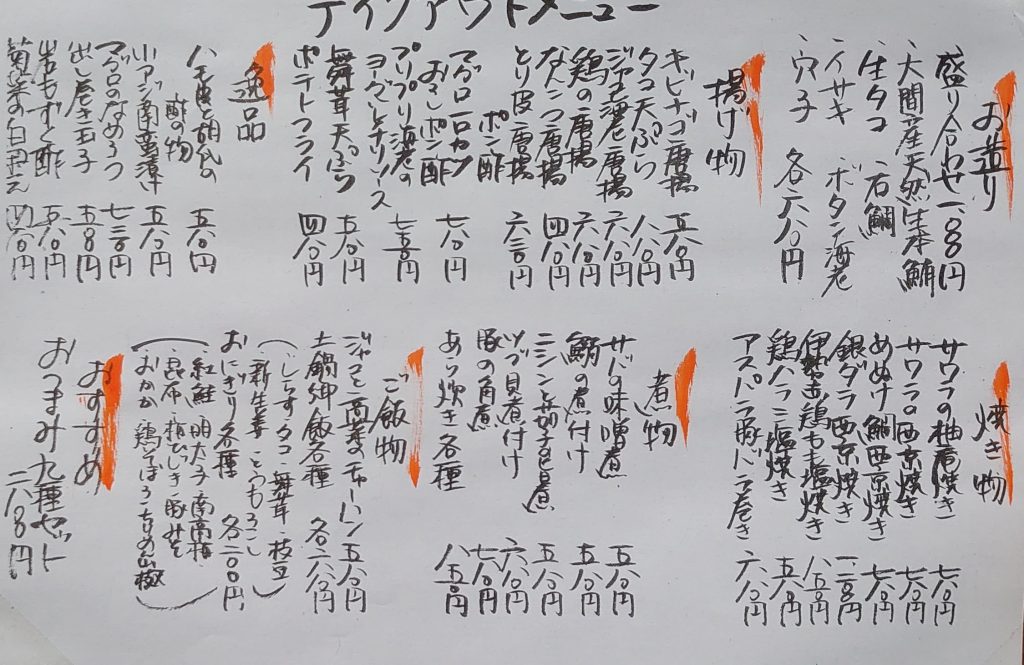 テイクアウトメニュー
お造り
盛り合わせ 一八〇〇円
・大間産天然生本鮪
・生タコ ・石鯛
・イサキ ・ボタン海老
・穴子 各六八〇円
揚げ物
キビナゴ唐揚 五八〇円
タコ天ぷら 八八〇円
ジャコ海老唐揚 六八〇円
鶏の唐揚 六八〇円
なんこつ唐揚 四八〇円
とり皮唐揚 六三〇円
マグロ一口カツ
おろしポン酢 七八〇円
プリプリ海老の
ヨーグルトチリソース
舞茸天ぷら 五八〇円
ポテトフライ 四八〇円
逸品
ハモ皮と胡瓜の
酢の物 五八〇円
小アジ南蛮漬け 五八〇円
マグロのなめろう 七三〇円
出し巻き玉子
生もずく酢 五八〇円
菊菜の白和え 四八〇円
焼き物
サワラの柚庵焼き 七八〇円
サワラの西京焼き 七八〇円
めぬけ鯛西京焼き 七八〇円
銀ダラ西京焼き
伊勢赤鶏もも塩焼き 八五〇円
鶏ハラミ塩焼き 五八〇円
アスパラ豚バラ巻き 六八〇円
煮物
サバの味噌煮 五八〇円
鯛の煮付け 五八〇円
ニシンと茄子の旨煮 五八〇円
ツブ貝煮付け 六八〇円
豚の角煮 七八〇円
あら炊き各種 八五〇円
ご飯物
ジャコと高菜のチャーハン 五八〇円
土鍋御飯各種 各二六八〇円
(しらす・タコ・舞茸・枝豆
新生姜・とうもろこし)
おにぎり各種 各二〇〇円
(紅鮭・明太子・南高梅
昆布・梅ひじき・豚みそ
おかか・鶏そぼろ・ちりめん山椒)
おすすめ
おつまみ九種セット
二八〇〇円